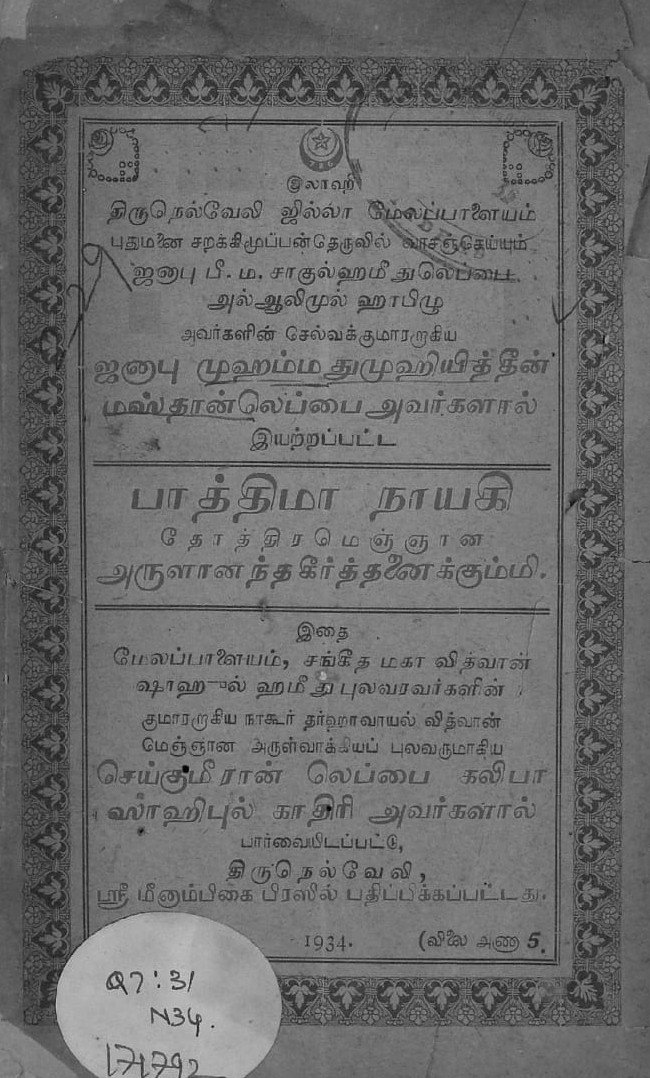 இலாஹி
திருநெல்வேலி ஜில்லா மேலப்பாளையம்
புதுமனை சறக்கிமூப்பன்தெருவில் வாசஞ்செய்யும்
ஜனாபு பீ. ம. சாகுல்ஹமீதுலெப்பை
அல்ஆலிமுல் ஹாபிழு
அவர்களின் செல்வக்குமாரராகிய
ஜனாபு முஹம்மதுமுஹியித்தீன்
மஸ்தான்லெப்பை அவர்களால்
இயற்றப்பட்ட
பாத்திமா நாயகி
தோத்திரமெஞ்ஞான
அருளானந்தகீர்த்தனைக்கும்மி.
இதை
மேலப்பாளையம், சங்கீத மகா வித்வான்
ஷாஹுல் ஹமீது புலவரவர்களின்
குமாரராகிய நாகூர் தர்ஹாவாயல் வித்வான்
மேஞ்ஞான அருள்வாக்கியப் புலவருமாகிய
செய்குமீரான் லெப்பை கலிபா
ஸாஹிபுல் காதிரி அவர்களால்
பார்வையிடப்பட்டு,
திருநெல்வேலி,
ஸ்ரீ மீனாம்பிகை பிரஸில் பதிப்பிக்கப்பட்டது.
1934. (விலை அணா 5.
Q7:31
N34.
171792